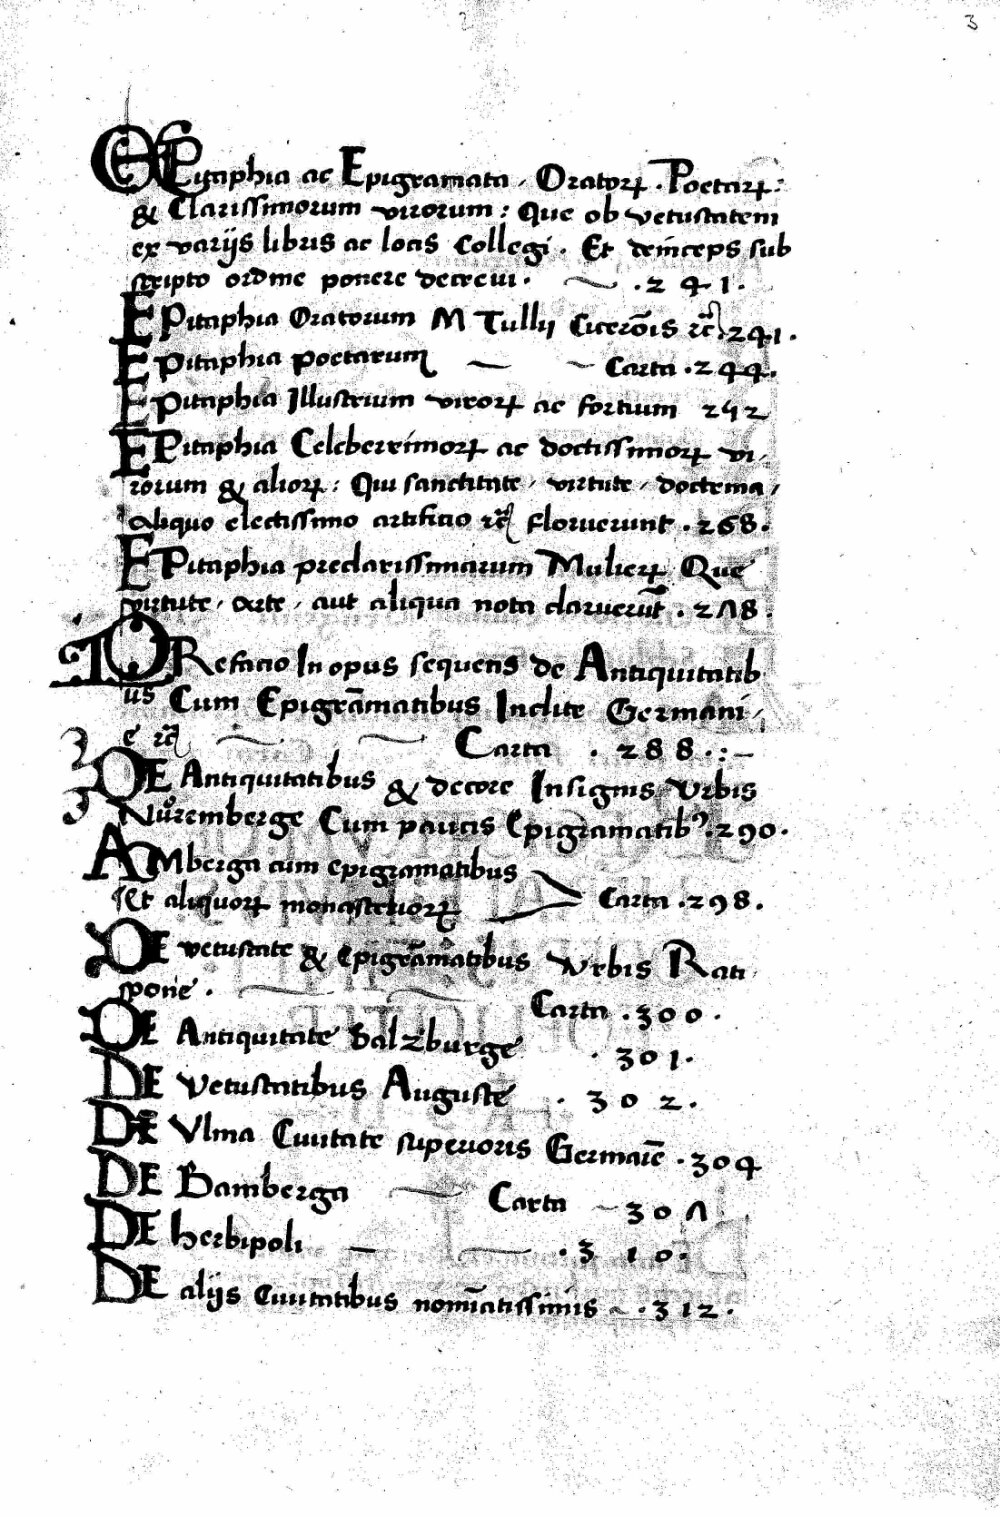 3
EPitaphia ac Epigramata, Oratorꝝ. Poetarꝝ:
& Clarissimorum virorum: Que ob vetustatem
ex varijs libris ac locis Collegi. Et deinceps sub
scripto ordine ponere decreui. .241.
EPitaphia Oratorum M Tullij Cicerōis ꝛc̄.241.
EPitaphia poetarum Carta .244.
EPitaphia Illustrium virorꝝ ac fortium 252
EPitaphia Celeberrimorꝝ ac doctissimorꝝ vi,
rorum & aliorꝝ: Qui sanctitate, virtute, doctrina,
aliquo electissimo artificio ꝛc̄ floruerunt .268.
EPitaphia preclarissimarum Mulierꝝ Que
virtute, arte, aut aliqua nota claruerūt .278.
PRefacio In opus sequens de Antiquitatib
us Cum Epigrāmatibus Inclite Germani,
e ꝛc̄ Carta .288.:–
DE Antiquitatibus & decore Insignis Vrbis
Nůremberge Cum paucis Epigramatibꝰ.290.
AMberga cum epigramatibus
et aliquorꝝ monasteriorꝝ Carta .298.
DE vetustate & Epigrāmatibus Vrbis Rati
spone. Carta .300.
DE Antiquitate Salzburge .301.
DE Vetustatibus Auguste .302.
DE Vlma Ciuitate superioris Germaīe .304
DE Bamberga Carta 307
DE herbipoli .310.
DE alijs Ciuitatibus nomīatissimis .312.